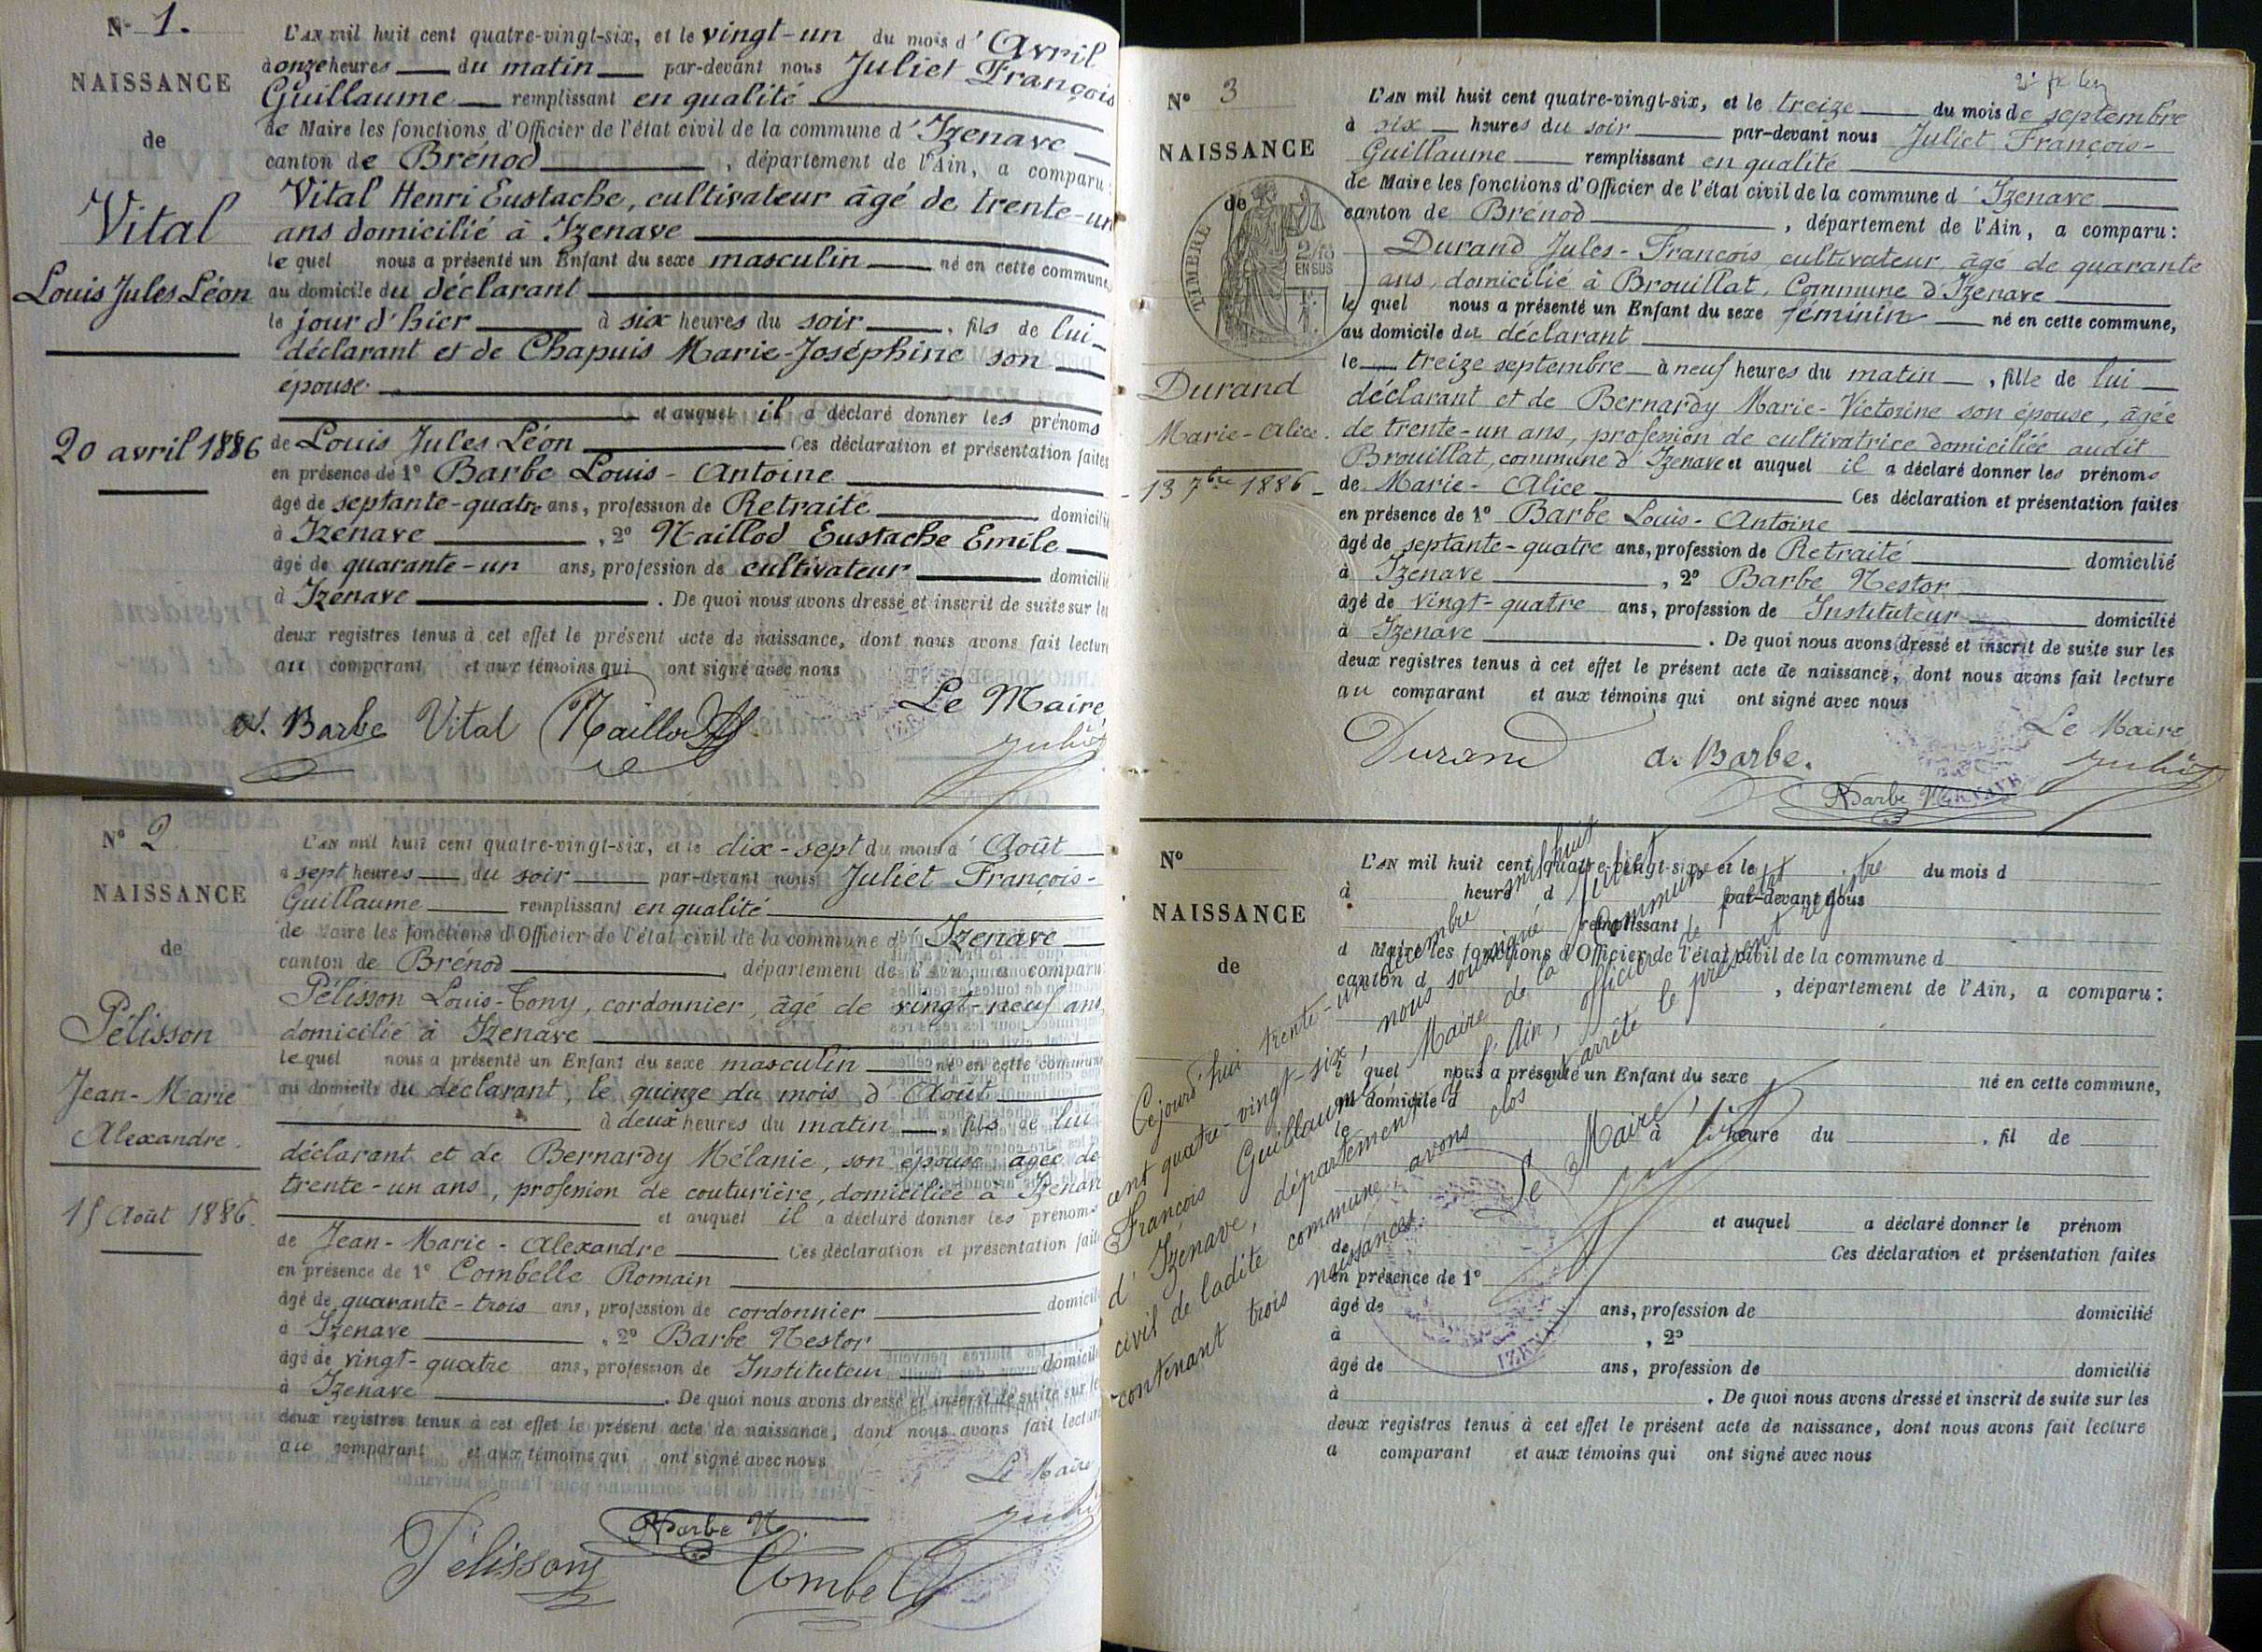 N° 1.
NAISSANCE
de
Vital
Louis Jules Léon
20 avril 1886
L'AN mil huit cent quatre-vingt-six, et le vingt-un du mois d'Avril
à onze heures du matin par-devant nous Juliet François
Guillaume remplissant en qualité
de Maire les fonctions d'Officier de l'état civil de la commune d'Izenave
canton de Brénod, département de l'Ain, a comparu:
Vital Henri Eustache, cultivateur âgé de trente-un
ans domicilié à Izenave
lequel nous a présenté un Enfant du sexe masculin né en cette commune,
au domicile du déclarant
le jour d'hier à six heures du soir, fils de lui
déclarant et de Chapuis Marie-Joséphine son
épouse
et auquel il a déclaré donner les prénoms
de Louis Jules Léon Ces déclaration et présentation faites
en présence de 1° Barbe Louis-Antoine
âgé de septante-quatre ans, profession de Retraité domicilié
à Izenave, 2° Maillod Eustache Emile
âgé de quarante-un ans, profession de cultivateur domicilié
à Izenave. De quoi nous avons dressé et inscrit de suite sur les
deux registres tenus à cet effet le présent acte de naissance, dont nous avons fait lecture
au comparant et aux témoins qui ont signé avec nous
Le Maire,
a. Barbe Vital Maillod Juliet
N° 2
NAISSANCE
de
Pélisson
Jean-Marie
Alexandre.
15 Août 1886.
L'AN mil huit cent quatre-vingt-six, et le dix-sept du mois d'Août
à sept heures du soir par-devant nous Juliet François-
Guillaume remplissant en qualité
de Maire les fonctions d'Officier de l'état civil de la commune d'Izenave
canton de Brénod, département de l'Ain, a comparu
Pélisson Louis-Tony, cordonnier, âgé de vingt-neuf ans
domicilié à Izenave
lequel nous a présenté un Enfant du sexe masculin né en cette commune
au domicile du déclarant, le quinze du mois d'Août
à deux heures du matin, fils de lui
déclarant et de Bernardy Mélanie, son épouse âgée de
trente-un ans, profession de couturière, domiciliée à Izenave
et auquel il a déclaré donner les prénoms
de Jean-Marie-Alexandre Ces déclaration et présentation faites
en présence de 1° Combelle Romain
âgé de quarante-trois ans, profession de cordonnier domicilié
à Izenave, 2° Barbe Nestor
âgé de vingt-quatre ans, profession de Instituteur domicilié
à Izenave. De quoi nous avons dressé et inscrit de suite sur les
deux registres tenus à cet effet le présent acte de naissance, dont nous avons fait lecture
au comparant et aux témoins qui ont signé avec nous
Le Maire
Barbe N. Juliet
Pélisson Combelle
N° 3
NAISSANCE
de
TIMBRE
2/10
EN SUS
Durand
Marie-Alice.
13 7bre 1886
L'AN mil huit cent quatre-vingt-six, et le treize du mois de septembre
à six heures du soir par-devant nous Juliet François-
Guillaume remplissant en qualité
de Maire les fonctions d'Officier de l'état civil de la commune d'Izenave
canton de Brénod, département de l'Ain, a comparu:
Durand Jules-François cultivateur âgé de quarante
ans, domicilié à Brouillat, Commune d'Izenave
lequel nous a présenté un Enfant du sexe féminin né en cette commune,
au domicile du déclarant
le treize septembre à neuf heures du matin, fille de lui
déclarant et de Bernardy Marie-Victorine son épouse, âgée
de trente-un ans, profession de cultivatrice domiciliée audit
Brouillat, commune d'Izenave et auquel il a déclaré donner les prénoms
de Marie-Alice Ces déclaration et présentation faites
en présence de 1° Barbe Louis-Antoine
âgé de septante-quatre ans, profession de Retraité domicilié
à Izenave, 2° Barbe Nestor
âgé de vingt-quatre ans, profession de Instituteur domicilié
à Izenave. De quoi nous avons dressé et inscrit de suite sur les
deux registres tenus à cet effet le présent acte de naissance, dont nous avons fait lecture
au comparant et aux témoins qui ont signé avec nous
Le Maire
Durand a. Barbe. Juliet
Barbe N.
N°
NAISSANCE
de
L'AN mil huit cent quatre-vingt-six, et le du mois d
à heure d par-devant nous
remplissant
d Maire les fonctions d'Officier de l'état civil de la commune d
canton d, département de l'Ain, a comparu:
l quel nous a présenté un Enfant du sexe né en cette commune,
au domicile d
le à heure du, fil de
et auquel a déclaré donner le prénom
de Ces déclaration et présentation faites
en présence de 1°
âgé de ans, profession de domicilié
à, 2°
âgé de ans, profession de domicilié
à. De quoi nous avons dressé et inscrit de suite sur les
deux registres tenus à cet effet le présent acte de naissance, dont nous avons fait lecture
a comparant et aux témoins qui ont signé avec nous
Cejourd'hui trente-un décembre mil huit
cent quatre-vingt-six, nous soussigné Juliet
François Guillaume Maire de la commune
d'Izenave, département de l'Ain, officier de l'état
civil de ladite commune, avons clos et arrêté le présent registre
contenant trois naissances.
Le Maire,
Juliet
IZENAVE